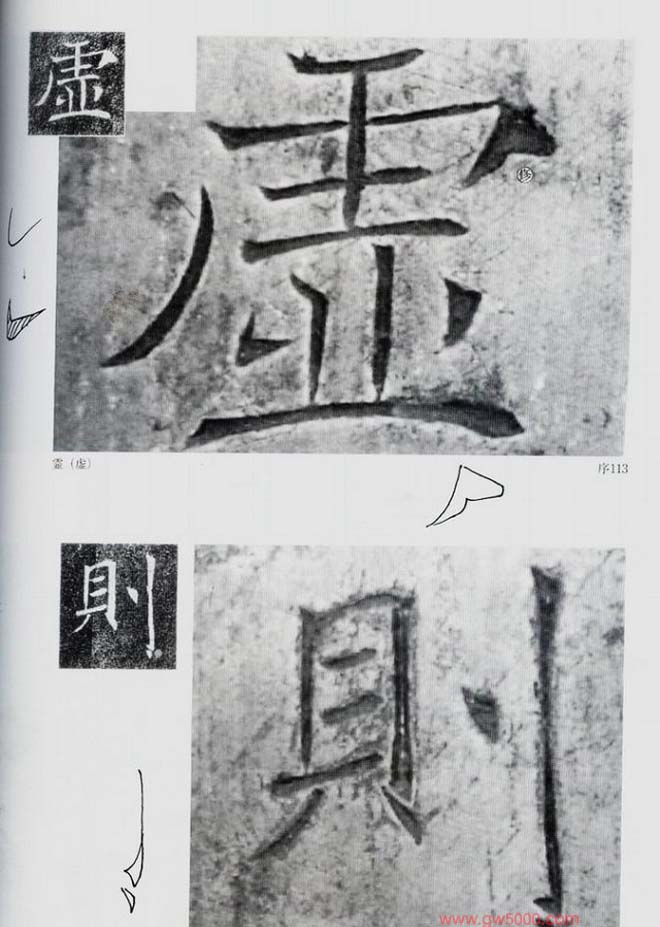 虛
虛
(虚)
序113
則
則
www.gw5000.com